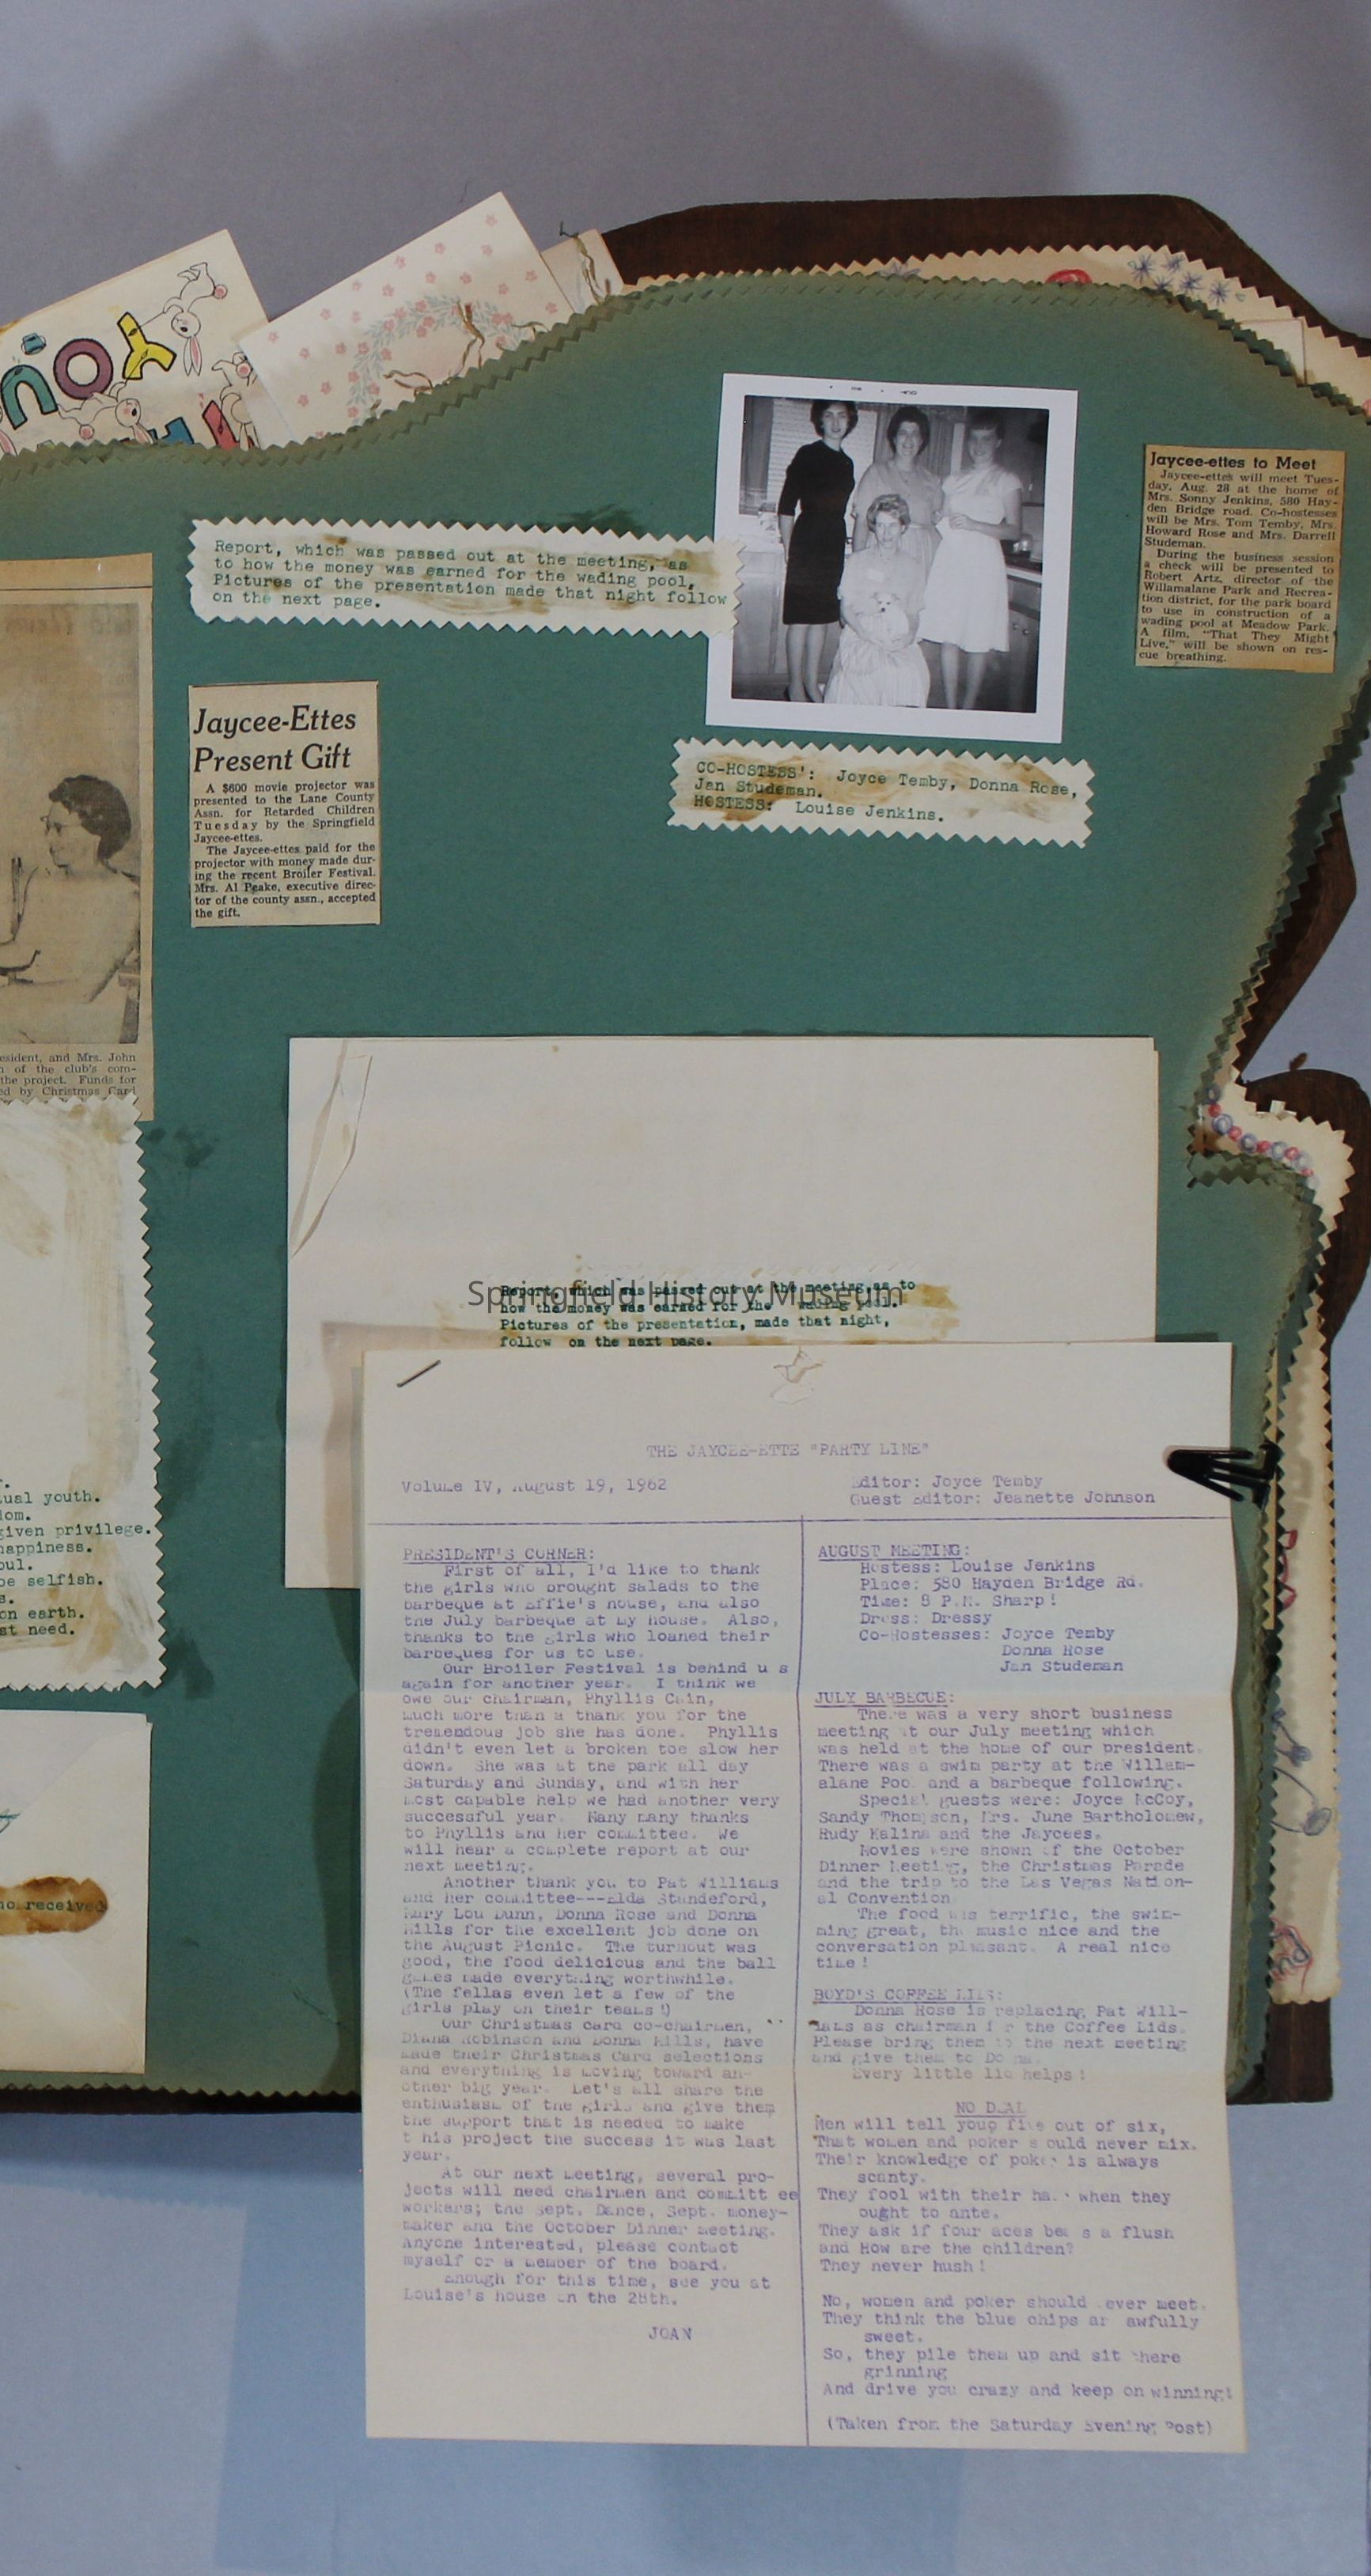 Report, which was passed out at the meeting, as
to how the money was earned for the wading pool.
Pictures of the presentation made that night follow
on the next page.
Jaycee-ettes to Meet
Jaycee-ettes will meet Tues-
day, Aug. 28 at the home of
Mrs. Sonny Jenkins, 580 Hay-
den Bridge road. Co-hostesses
will be Mrs. Tom Temby, Mrs.
Howard Rose and Mrs. Darrell
Studeman.
During the business session
a check will be presented to
Robert Artz, director of the
Willamalane Park and Recrea-
tion district, for the park board
to use in construction of a
wading pool at Meadow Park.
A film, "That They Might
Live," will be shown on res-
cue breathing.
Jaycee-Ettes
Present Gift
A $600 movie projector was
presented to the Lane County
Assn. for Retarded Children
Tuesday by the Springfield
Jaycee-ettes.
The Jaycee-ettes paid for the
projector with money made dur-
ing the recent Broiler Festival.
Mrs. Al Peake, executive direc-
tor of the county assn., accepted
the gift.
CO-HOSTESS': Joyce Temby, Donna Rose,
Jan Studeman.
HOSTESS: Louise Jenkins.
esident, and Mrs. John
of the club's com-
the project. Funds for
ed by Christmas Card
ual youth.
dom.
given privilege.
happiness.
oul.
be selfish.
s.
on earth.
st need.
ho received
Report, which was passed out at the meeting,as to
how the money was earned for the wading pool.
Pictures of the presentation, made that night,
follow on the next page.
Springfield History Museum
THE JAYCEE-ETTE "PARTY LINE"
Volume IV, August 19, 1962
Editor: Joyce Temby
Guest Editor: Jeanette Johnson
PRESIDENT'S CORNER:
First of all, I'd like to thank
the girls who brought salads to the
barbeque at Effie's house, and also
the July barbeque at my house. Also,
thanks to the girls who loaned their
barbeques for us to use.
Our Broiler Festival is behind u s
again for another year. I think we
owe our chairman, Phyllis Cain,
much more than a thank you for the
tremendous job she has done. Phyllis
didn't even let a broken toe slow her
down. She was at the park all day
Saturday and Sunday, and with her
most capable help we had another very
successful year. Many many thanks
to Phyllis and her committee. We
will hear a complete report at our
next meeting.
Another thank you to Pat Williams
and her committee---Elda Standeford,
Mary Lou Dunn, Donna Rose and Donna
Mills for the excellent job done on
the August Picnic. The turnout was
good, the food delicious and the ball
games made everything worthwhile.
(The fellas even let a few of the
girls play on their teams!)
Our Christmas card co-chairmen,
Diana Robinson and Donna Mills, have
made their Christmas Card selections
and everything is moving toward an-
other big year. Let's all share the
enthusiasm of the girls and give them
the support that is needed to make
t his project the success it was last
year.
At our next meeting, several pro-
jects will need chairmen and committ ee
workers; the Sept. Dance, Sept. money-
maker and the October Dinner meeting.
Anyone interested, please contact
myself or a member of the board.
Enough for this time, see you at
Louise's house on the 28th.
JOAN
AUGUST MEETING:
Hostess: Louise Jenkins
Place: 580 Hayden Bridge Rd.
Time: 8 P.M. Sharp!
Dress: Dressy
Co-Hostesses: Joyce Temby
Donna Rose
Jan Studeman
JULY BARBECUE:
There was a very short business
meeting at our July meeting which
was held at the home of our president.
There was a swim party at the Willam-
alane Pool and a barbeque following.
Special guests were: Joyce McCoy,
Sandy Thompson, Mrs. June Bartholomew,
Rudy Kalina and the Jaycees.
Movies were shown of the October
Dinner Meeting, the Christmas Parade
and the trip to the Las Vegas Nation-
al Convention
The food was terrific, the swim-
ming great, the music nice and the
conversation pleasant. A real nice
time!
BOYD'S COFFEE LIDS:
Donna Rose is replacing Pat Will-
iams as chairman for the Coffee Lids.
Please bring them to the next meeting
and give them to Donna.
Every little lid helps!
NO DEAL
Men will tell you, five out of six,
That women and poker should never mix.
Their knowledge of poker is always
scanty.
They fool with their hair when they
ought to ante.
They ask if four aces beats a flush
and How are the children?
They never hush!
No, women and poker should never meet.
They think the blue chips are awfully
sweet.
So, they pile them up and sit there
grinning
And drive you crazy and keep on winning!
(Taken from the Saturday Evening Post)